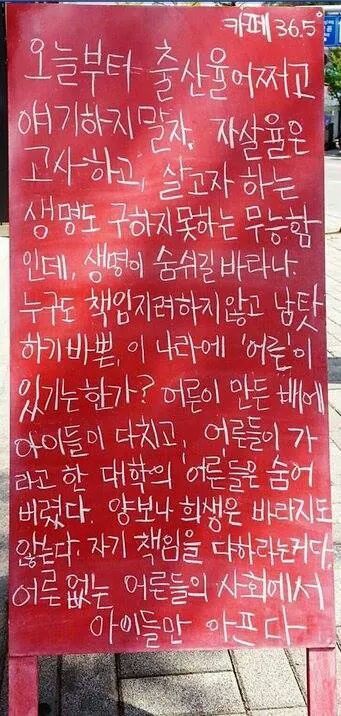 카페 36.5°
오늘부터 출산율 어쩌고
얘기하지 말자. 자살율은
고사하고, 살고자 하는
생명도 구하지 못하는 무능함
인데, 생명이 숨쉬길 바라나.
누구도 책임지려하지 않고 남탓
하기 바쁜, 이 나라에 '어른'이
있기는 한가? 어른이 만든 배에
아이들이 다치고, 어른들이 가
라고 한 대학의 어른들은 숨어
버렸다. 양보나 희생은 바라지도
않는다. 자기 책임을 다하라는거다.
어른 없는 어른들의 사회에서
아이들만 아프다